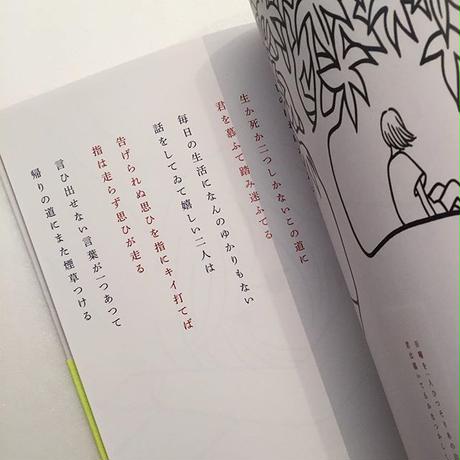 生か死か二つしかないこの道に
君を慕ふて踏み迷ふてる
毎日の生活になんのゆかりもない
話をしてゐて嬉しい二人は
告げられぬ思ひを指にキイ打てば
指は走らず思ひが走る
言ひ出せない言葉が一つあつて
帰りの道にまた煙草つける